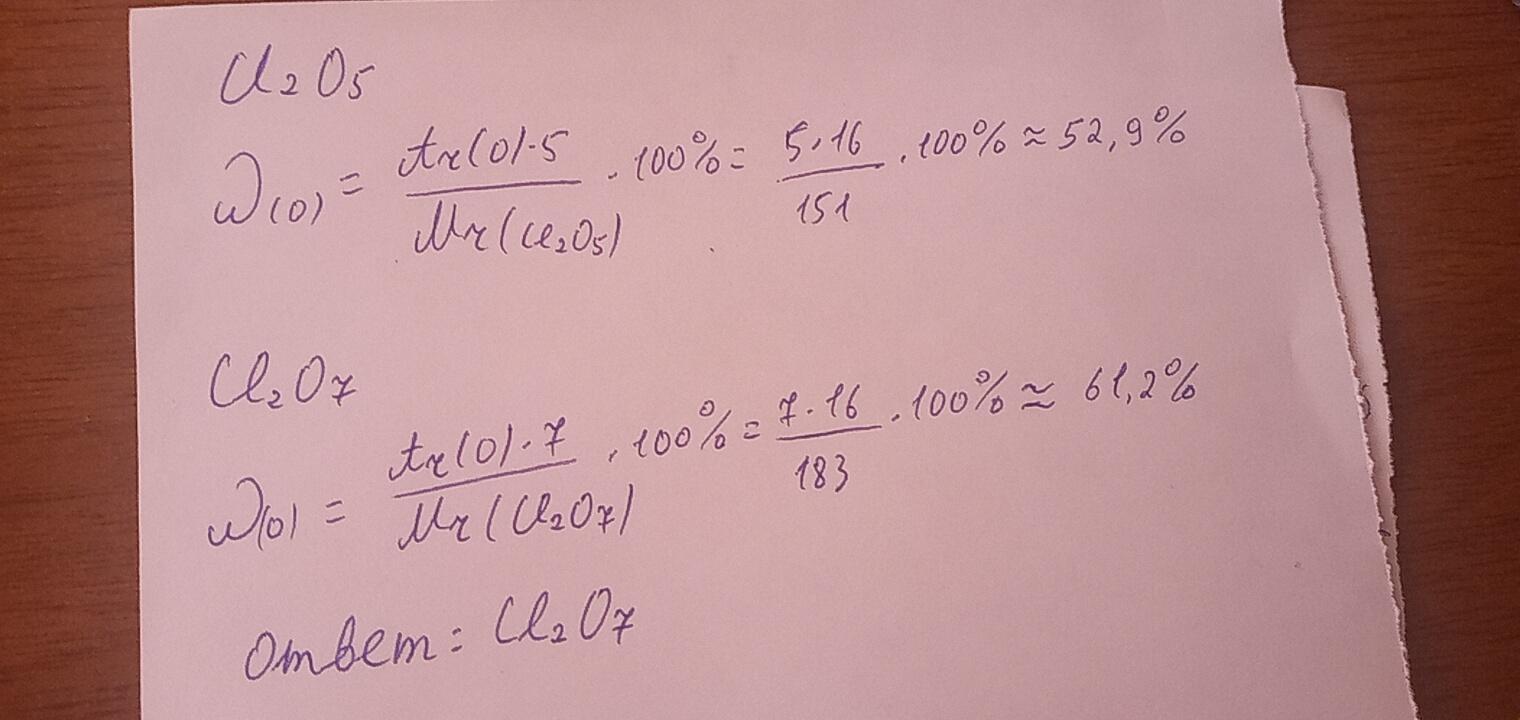 Cl₂O₅
ω(O) = Ar(O)·5 / Mr(Cl₂O₅) · 100% = 5·16 / 151 · 100% ≈ 52,9%
Cl₂O₇
ω(O) = Ar(O)·7 / Mr(Cl₂O₇) · 100% = 7·16 / 183 · 100% ≈ 61,2%
Ответ: Cl₂O₇